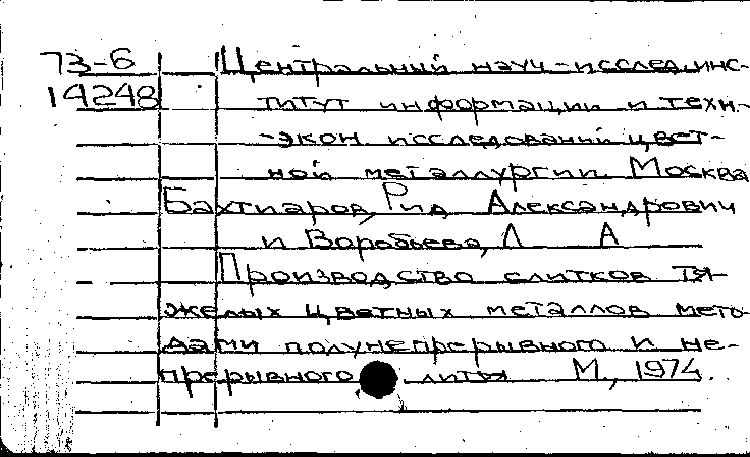 73-6 Центральный науч-исслед.инс-
14248 титут информации и техн-
-экон исследований цвет-
ной металлургии. Москва
Бахтиаров, Рид Александрович
и Воробьева, Л А
Производство слитков тя-
желых цветных металлов мето-
дами полунепрерывного и не-
прерывного литья М., 1974.